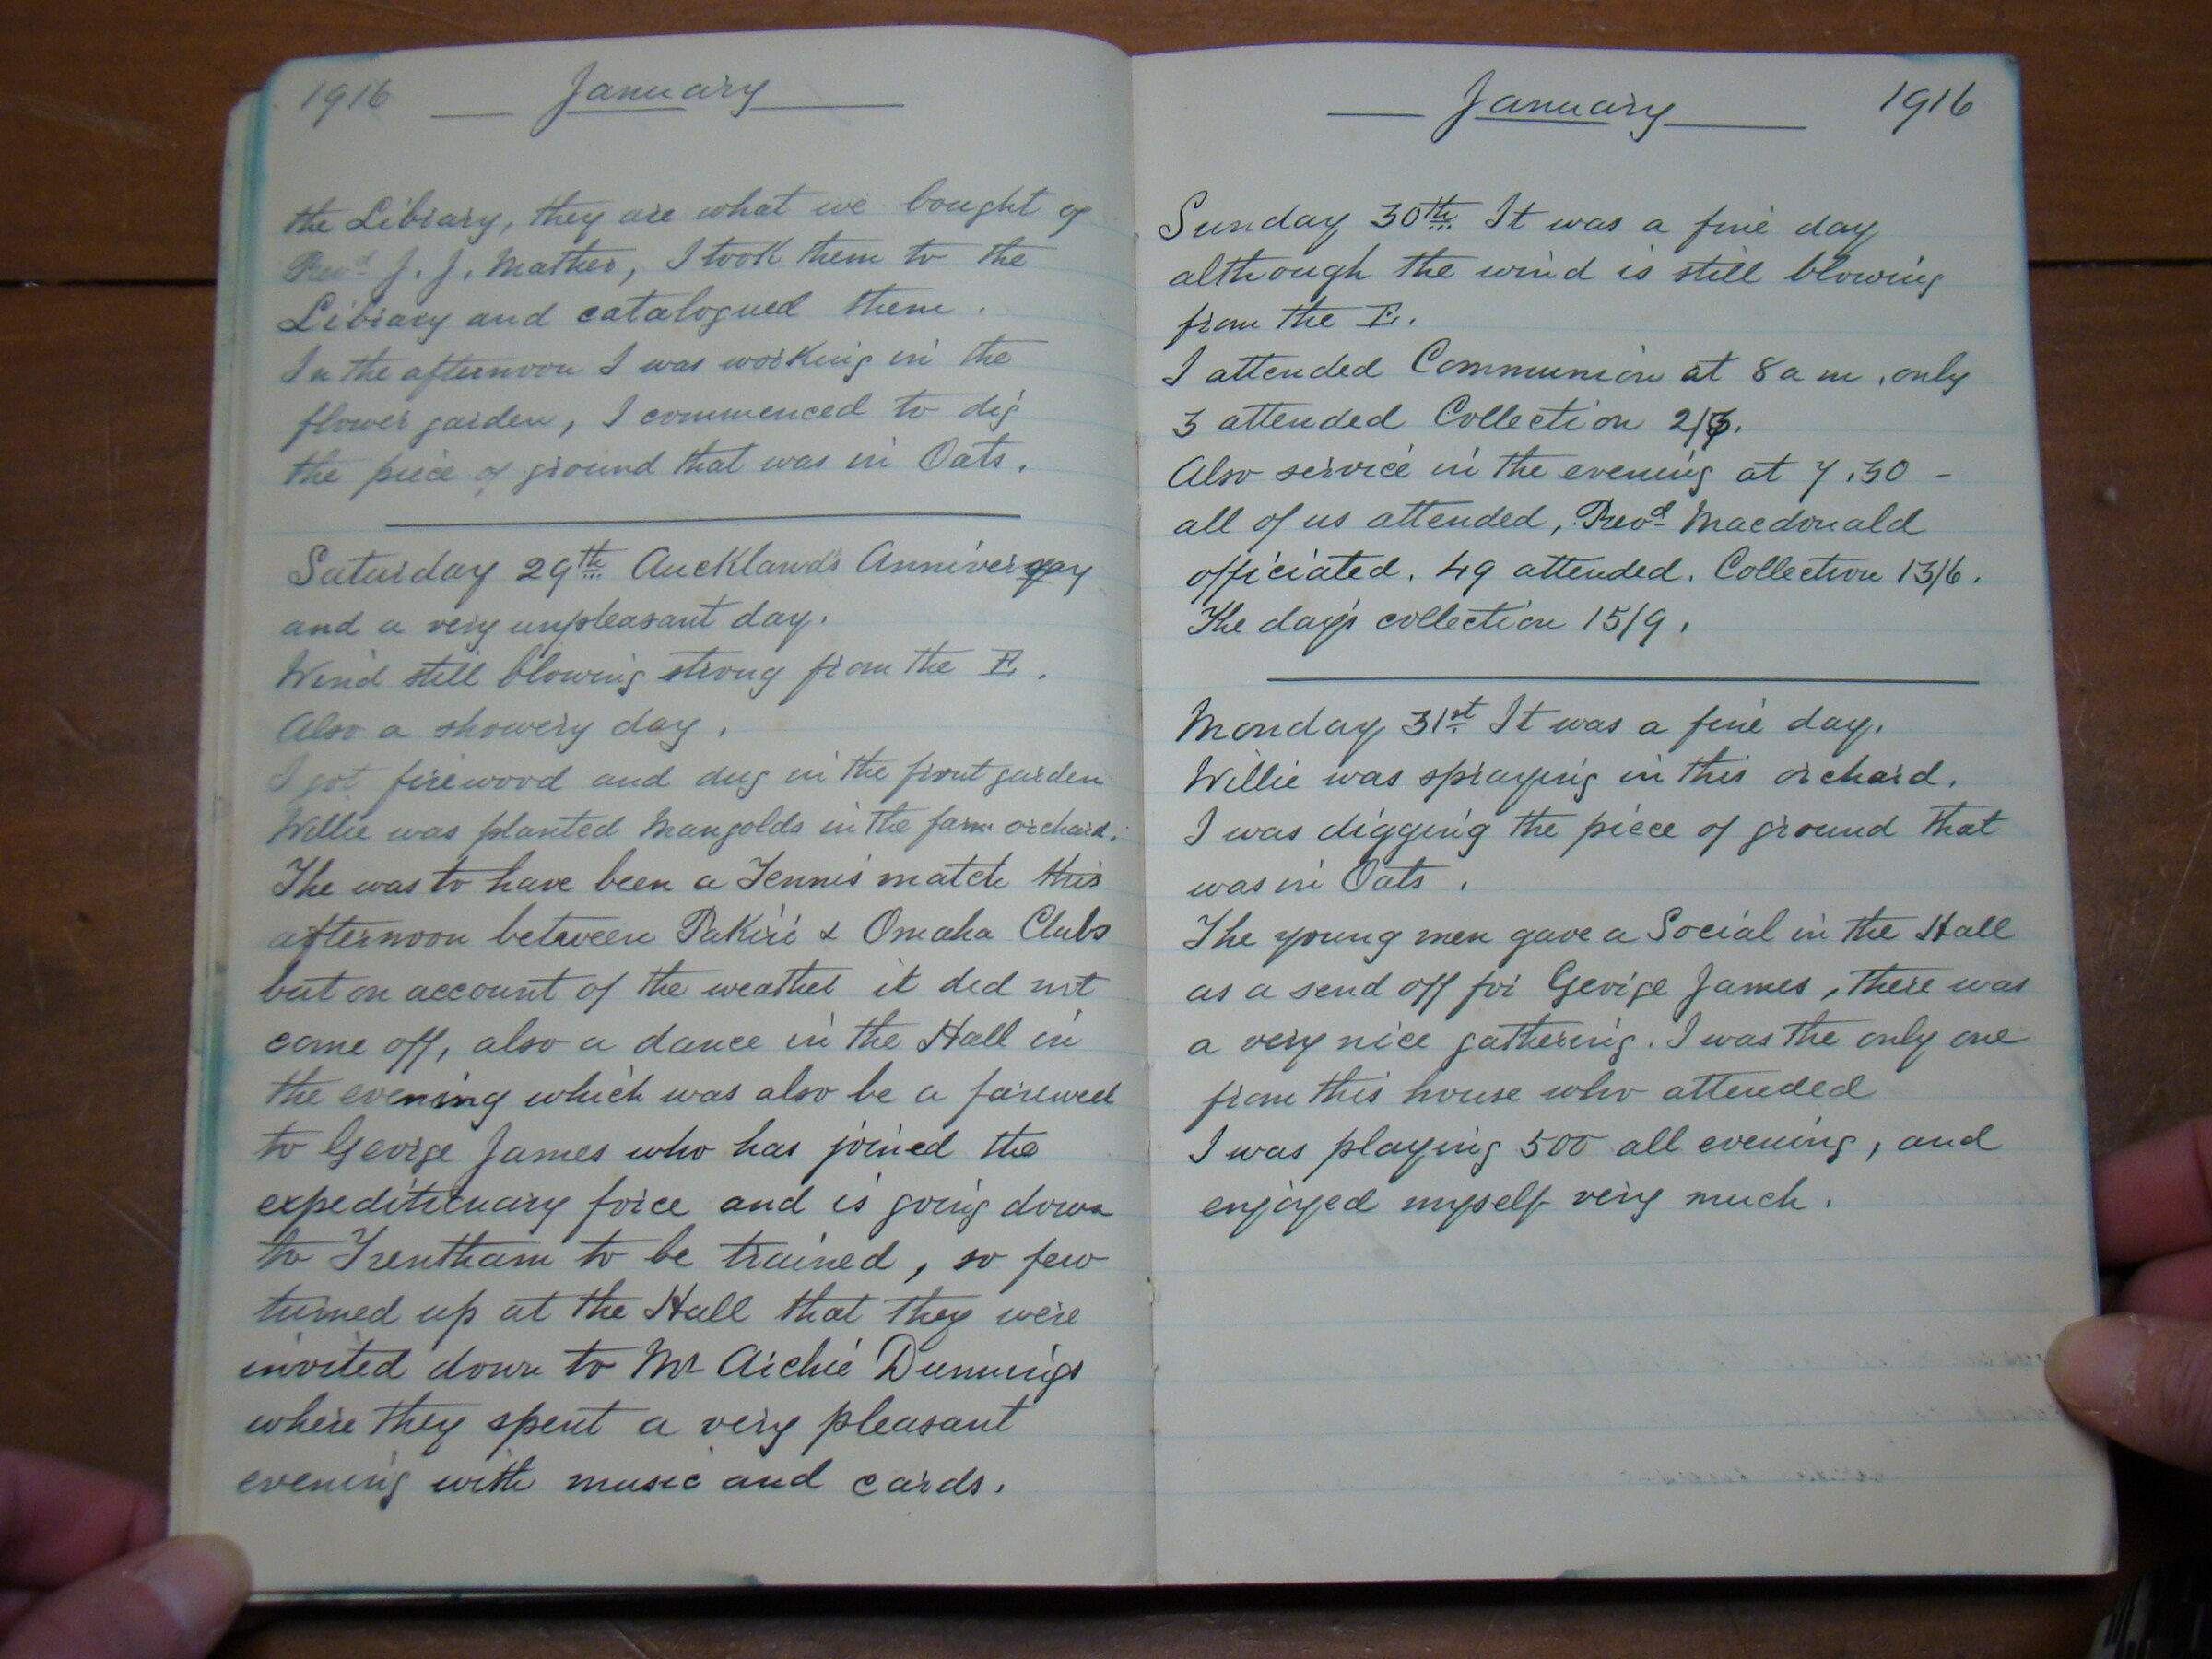 1916 January
the Library, they are what we bought of
Revd J. J. Mather, I took them to the
Library and catalogued them.
In the afternoon I was working in the
flower garden, I commenced to dig
the piece of ground that was in Oats.
Saturday 29th Auckland's Anniversay
and a very unpleasant day.
Wind still blowing strong from the E.
Also a showery day.
I got firewood and dug in the front garden
Willie was planted Mangolds in the farm orchard.
The was to have been a Tennis match this
afternoon between Pakiri & Omaha Clubs
but on account of the weather it did not
come off, also a dance in the Hall in
the evening which was also be a farewell
to George James who has joined the
expeditionary force and is going down
to Trentham to be trained, so few
turned up at the Hall that they were
invited down to Mr Archie Dunnings
where they spent a very pleasant
evening with music and cards.
January 1916
Sunday 30th It was a fine day
although the wind is still blowing
from the E.
I attended Communion at 8 a m, only
3 attended Collection 2/3.
Also service in the evening at 7.30 -
all of us attended, Revd Macdonald
officiated. 49 attended. Collection 13/6.
The day's collection 15/9.
Monday 31st It was a fine day.
Willie was spraying in this orchard.
I was digging the piece of ground that
was in Oats.
The young men gave a Social in the Hall
as a send off for George James, there was
a very nice gathering. I was the only one
from this house who attended
I was playing 500 all evening, and
enjoyed myself very much.